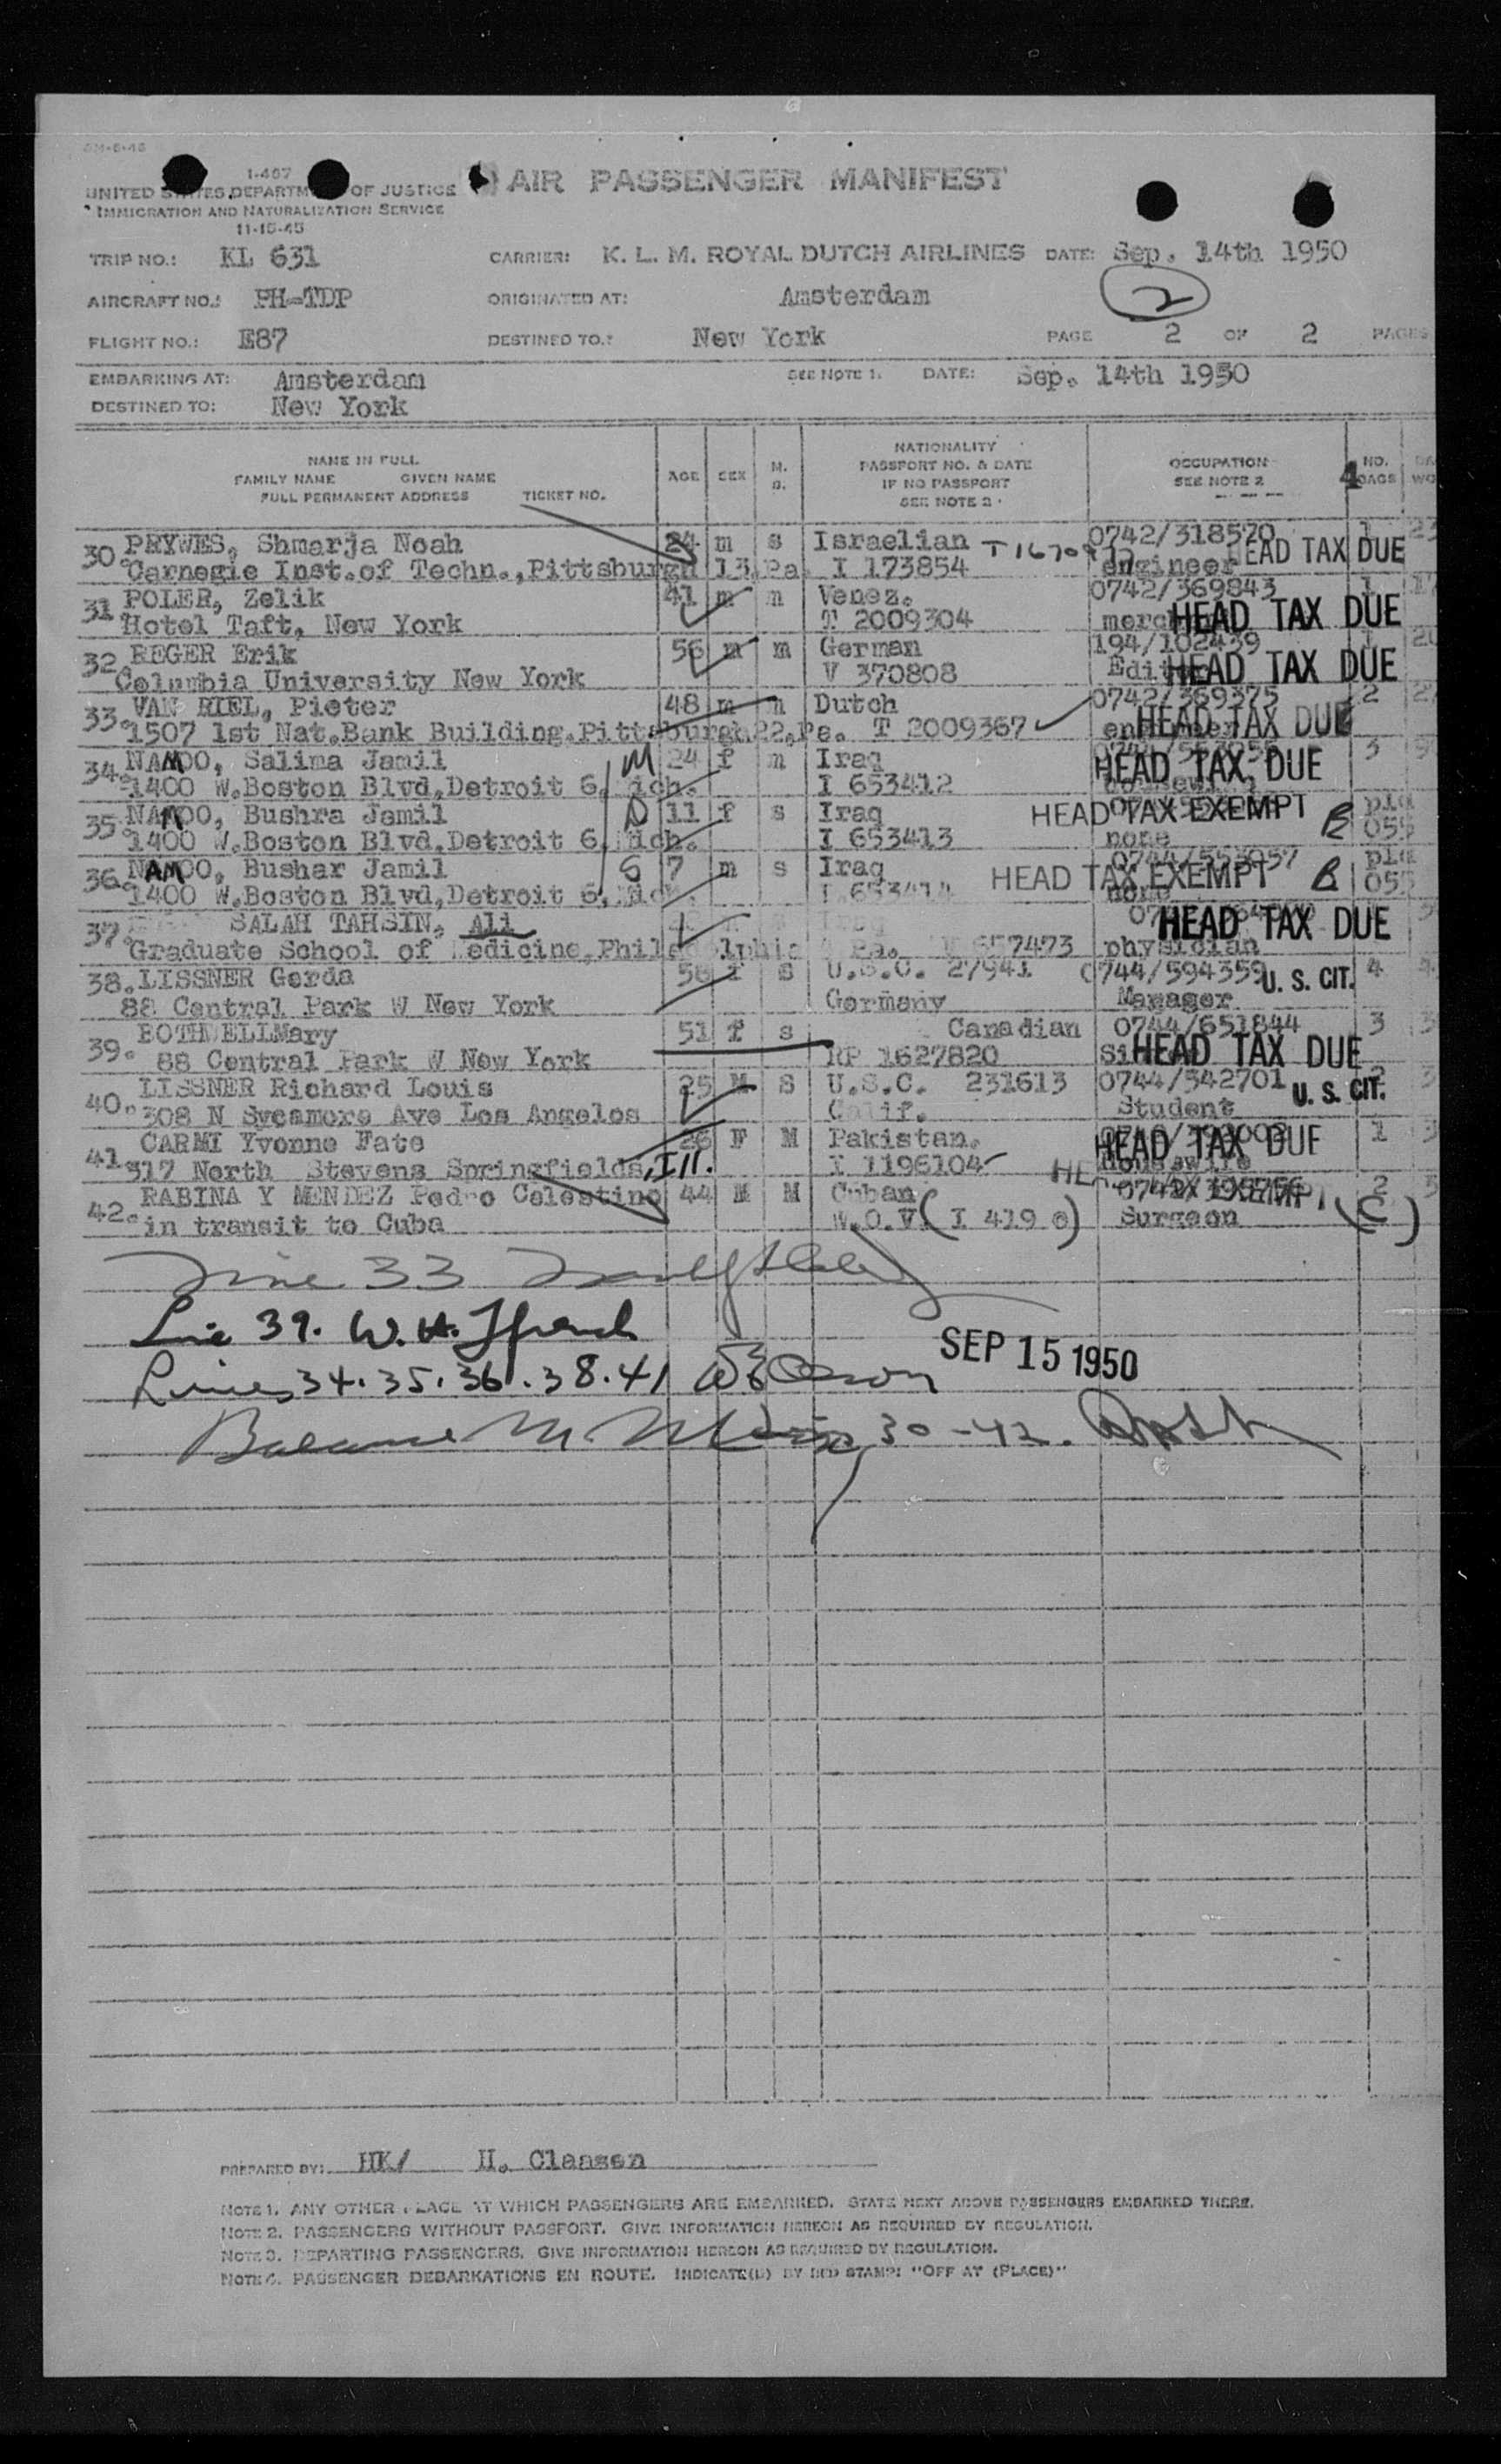 1-467
UNITED STATES DEPARTMENT OF JUSTICE
IMMIGRATION AND NATURALIZATION SERVICE
11-15-45
AIR PASSENGER MANIFEST
TRIP NO.: KL 631 CARRIER: K. L. M. ROYAL DUTCH AIRLINES DATE: Sep. 14th 1950
AIRCRAFT NO.: PH-TDP ORIGINATED AT: Amsterdam 2
FLIGHT NO.: E87 DESTINED TO.: New York PAGE 2 OF 2 PAGES
EMBARKING AT: Amsterdam SEE NOTE 1. DATE: Sep. 14th 1950
DESTINED TO: New York
NAME IN FULL
FAMILY NAME GIVEN NAME
FULL PERMANENT ADDRESS TICKET NO.
AGE SEX M. S.
NATIONALITY
PASSPORT NO. & DATE
IF NO PASSPORT
SEE NOTE 2
OCCUPATION
SEE NOTE 2
4 NO. BAGS
30. PRYWES, Shmarja Noah 24 m s Israelian 0742/318570 1
Carnegie Inst.of Techn.,Pittsburgh 13,Pa. I 173854 engineer HEAD TAX DUE
31 POLER, Zelik 41 m m Venez. 0742/369843 1
Hotel Taft, New York T 2009304 HEAD TAX DUE
32. REGER Erik 56 m m German 194/102439 1
Columbia University New York V 370808 HEAD TAX DUE
33. VAN RIEL, Pieter 48 m m Dutch 0742/369375 2
1507 1st Nat.Bank Building.Pittsburgh 22,Pa. T 2009367 HEAD TAX DUE
34. NAMOO, Salima Jamil M 24 f m Iraq 3
1400 W.Boston Blvd,Detroit 6, Mich. I 653412 HEAD TAX DUE
35. NAMOO, Bushra Jamil D 11 f s Iraq HEAD TAX EXEMPT B
1400 W.Boston Blvd.Detroit 6, Mich. I 653413 none
36. NAMOO, Bushar Jamil S 7 m s Iraq 0744/553057
1400 W.Boston Blvd,Detroit 6, Mich. I 653414 HEAD TAX EXEMPT B none
37. SALAH TAHSIN, Ali HEAD TAX DUE
Graduate School of Medicine,Philadelphia physician
38. LISSNER Gerda 58 f s U.S.C. 27941 0744/594359 U. S. CIT. 4
88 Central Park W New York Germany Manager
39. BOTHWELL Mary 51 f s Canadian 0744/651844 3
88 Central Park W New York RP 1627820 HEAD TAX DUE
40. LISSNER Richard Louis 25 M S U.S.C. 231613 0744/542701 U. S. CIT.
308 N Sycamore Ave Los Angeles Calif. Student
41. CARMI Yvonne Fate 26 F M Pakistan. HEAD TAX DUE 1
317 North Stevens Springfields, Ill. I 1196104 housewife
42. RABINA Y MENDEZ Pedro Celestino 44 M M Cuban HEAD TAX EXEMPT 2
in transit to Cuba W.O.V. (I 419 e) Surgeon (C)
Line 33
Line 39. W. H.
SEP 15 1950
Lines 34.35.36.38.41
Balance 30-42.
PREPARED BY: HK/ H. Claasen
NOTE 1. ANY OTHER PLACE AT WHICH PASSENGERS ARE EMBARKED. STATE NEXT ABOVE PASSENGERS EMBARKED THERE.
NOTE 2. PASSENGERS WITHOUT PASSPORT. GIVE INFORMATION HEREON AS REQUIRED BY REGULATION.
NOTE 3. DEPARTING PASSENGERS. GIVE INFORMATION HEREON AS REQUIRED BY REGULATION.
NOTE 4. PASSENGER DEBARKATIONS EN ROUTE. INDICATE(D) BY RED STAMP: "OFF AT (PLACE)"